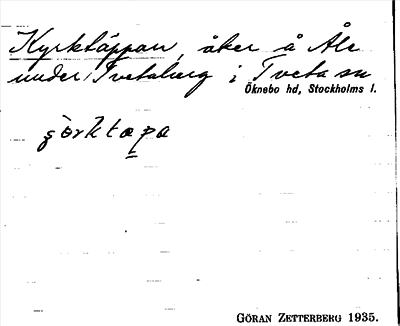 Kyrktäppan, åker å Åle
under Tvetaberg i Tveta sn
Öknebo hd, Stockholms l.
GÖRAN ZETTERBERG 1935.